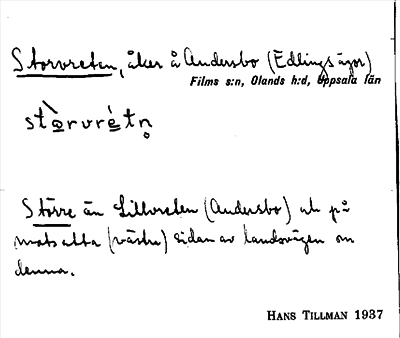 Storvreten, åker å Andersbo (Edlings ägor)
Films s:n, Olands h:d, Uppsala län
stòrvrétn̥
Större än Lillvreten (Andersbo) och på
motsatta (västra) sidan av landsvägen om
denna.
HANS TILLMAN 1937